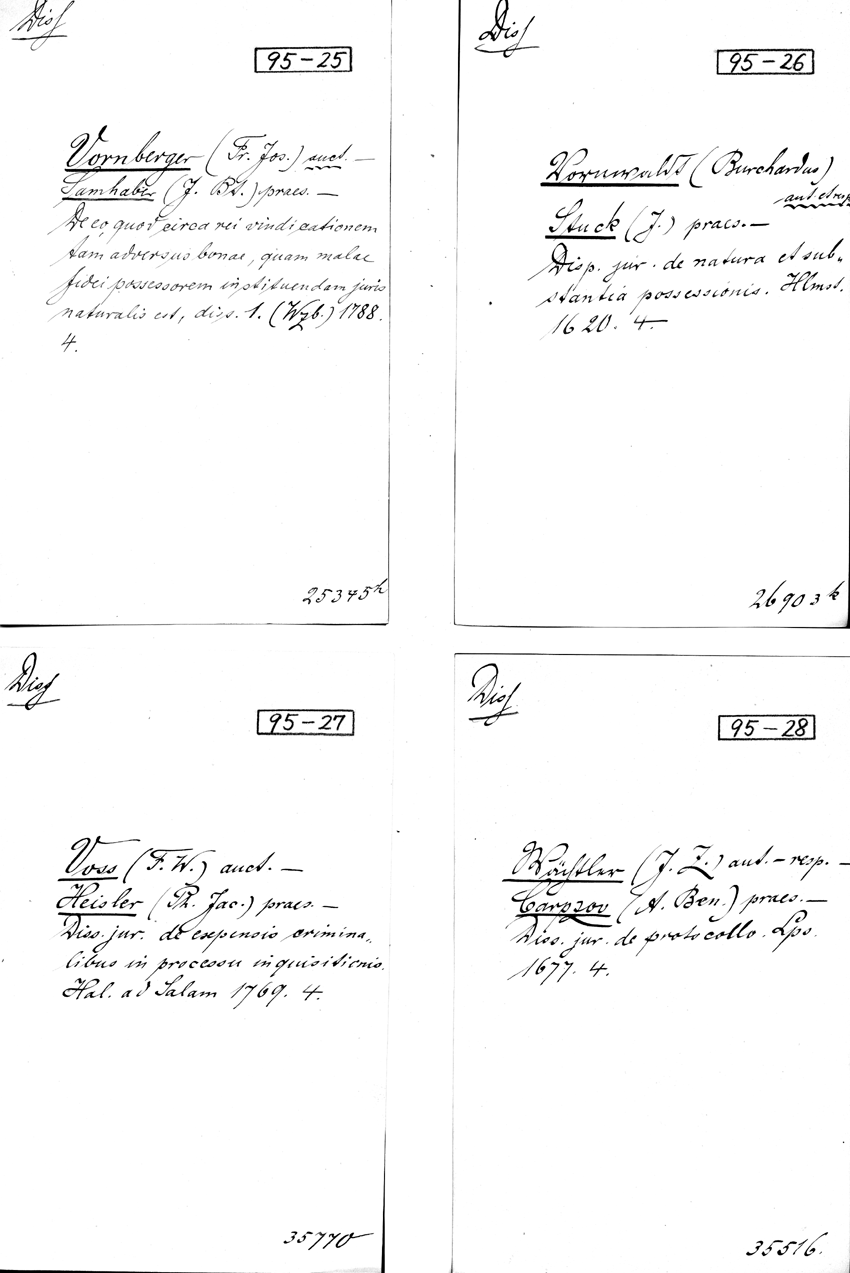 Diss
95-25
Vornberger (Fr. Jos.) auct. —
Samhaber (J. Bt.) praes. —
De eo, quod circa rei vindicationem
tam adversus bonae, quam malae
fidei possessorem instituendam juris
naturalis est, disp. 1. (Wzb.) 1788.
4.
25345h
Diss
95-26
Vornwaldt (Burchardus)
aut et resp
Stuck (J.) praes. —
Disp. jur. de natura et sub-
stantia possessionis. Hlmst.
1620. 4.
26903k
Diss
95-27
Voss (F. W.) auct. —
Heisler (Ph. Jac.) praes. —
Diss. jur. de expensis crimina-
libus in processu inquisitionis.
Hal. ad Salam 1769. 4.
35770
Diss
95-28
Wächtler (J. Z.) aut. — resp. —
Carpzov (A. Ben.) praes. —
Diss. jur. de protocollo. Lps.
1677. 4.
35516.